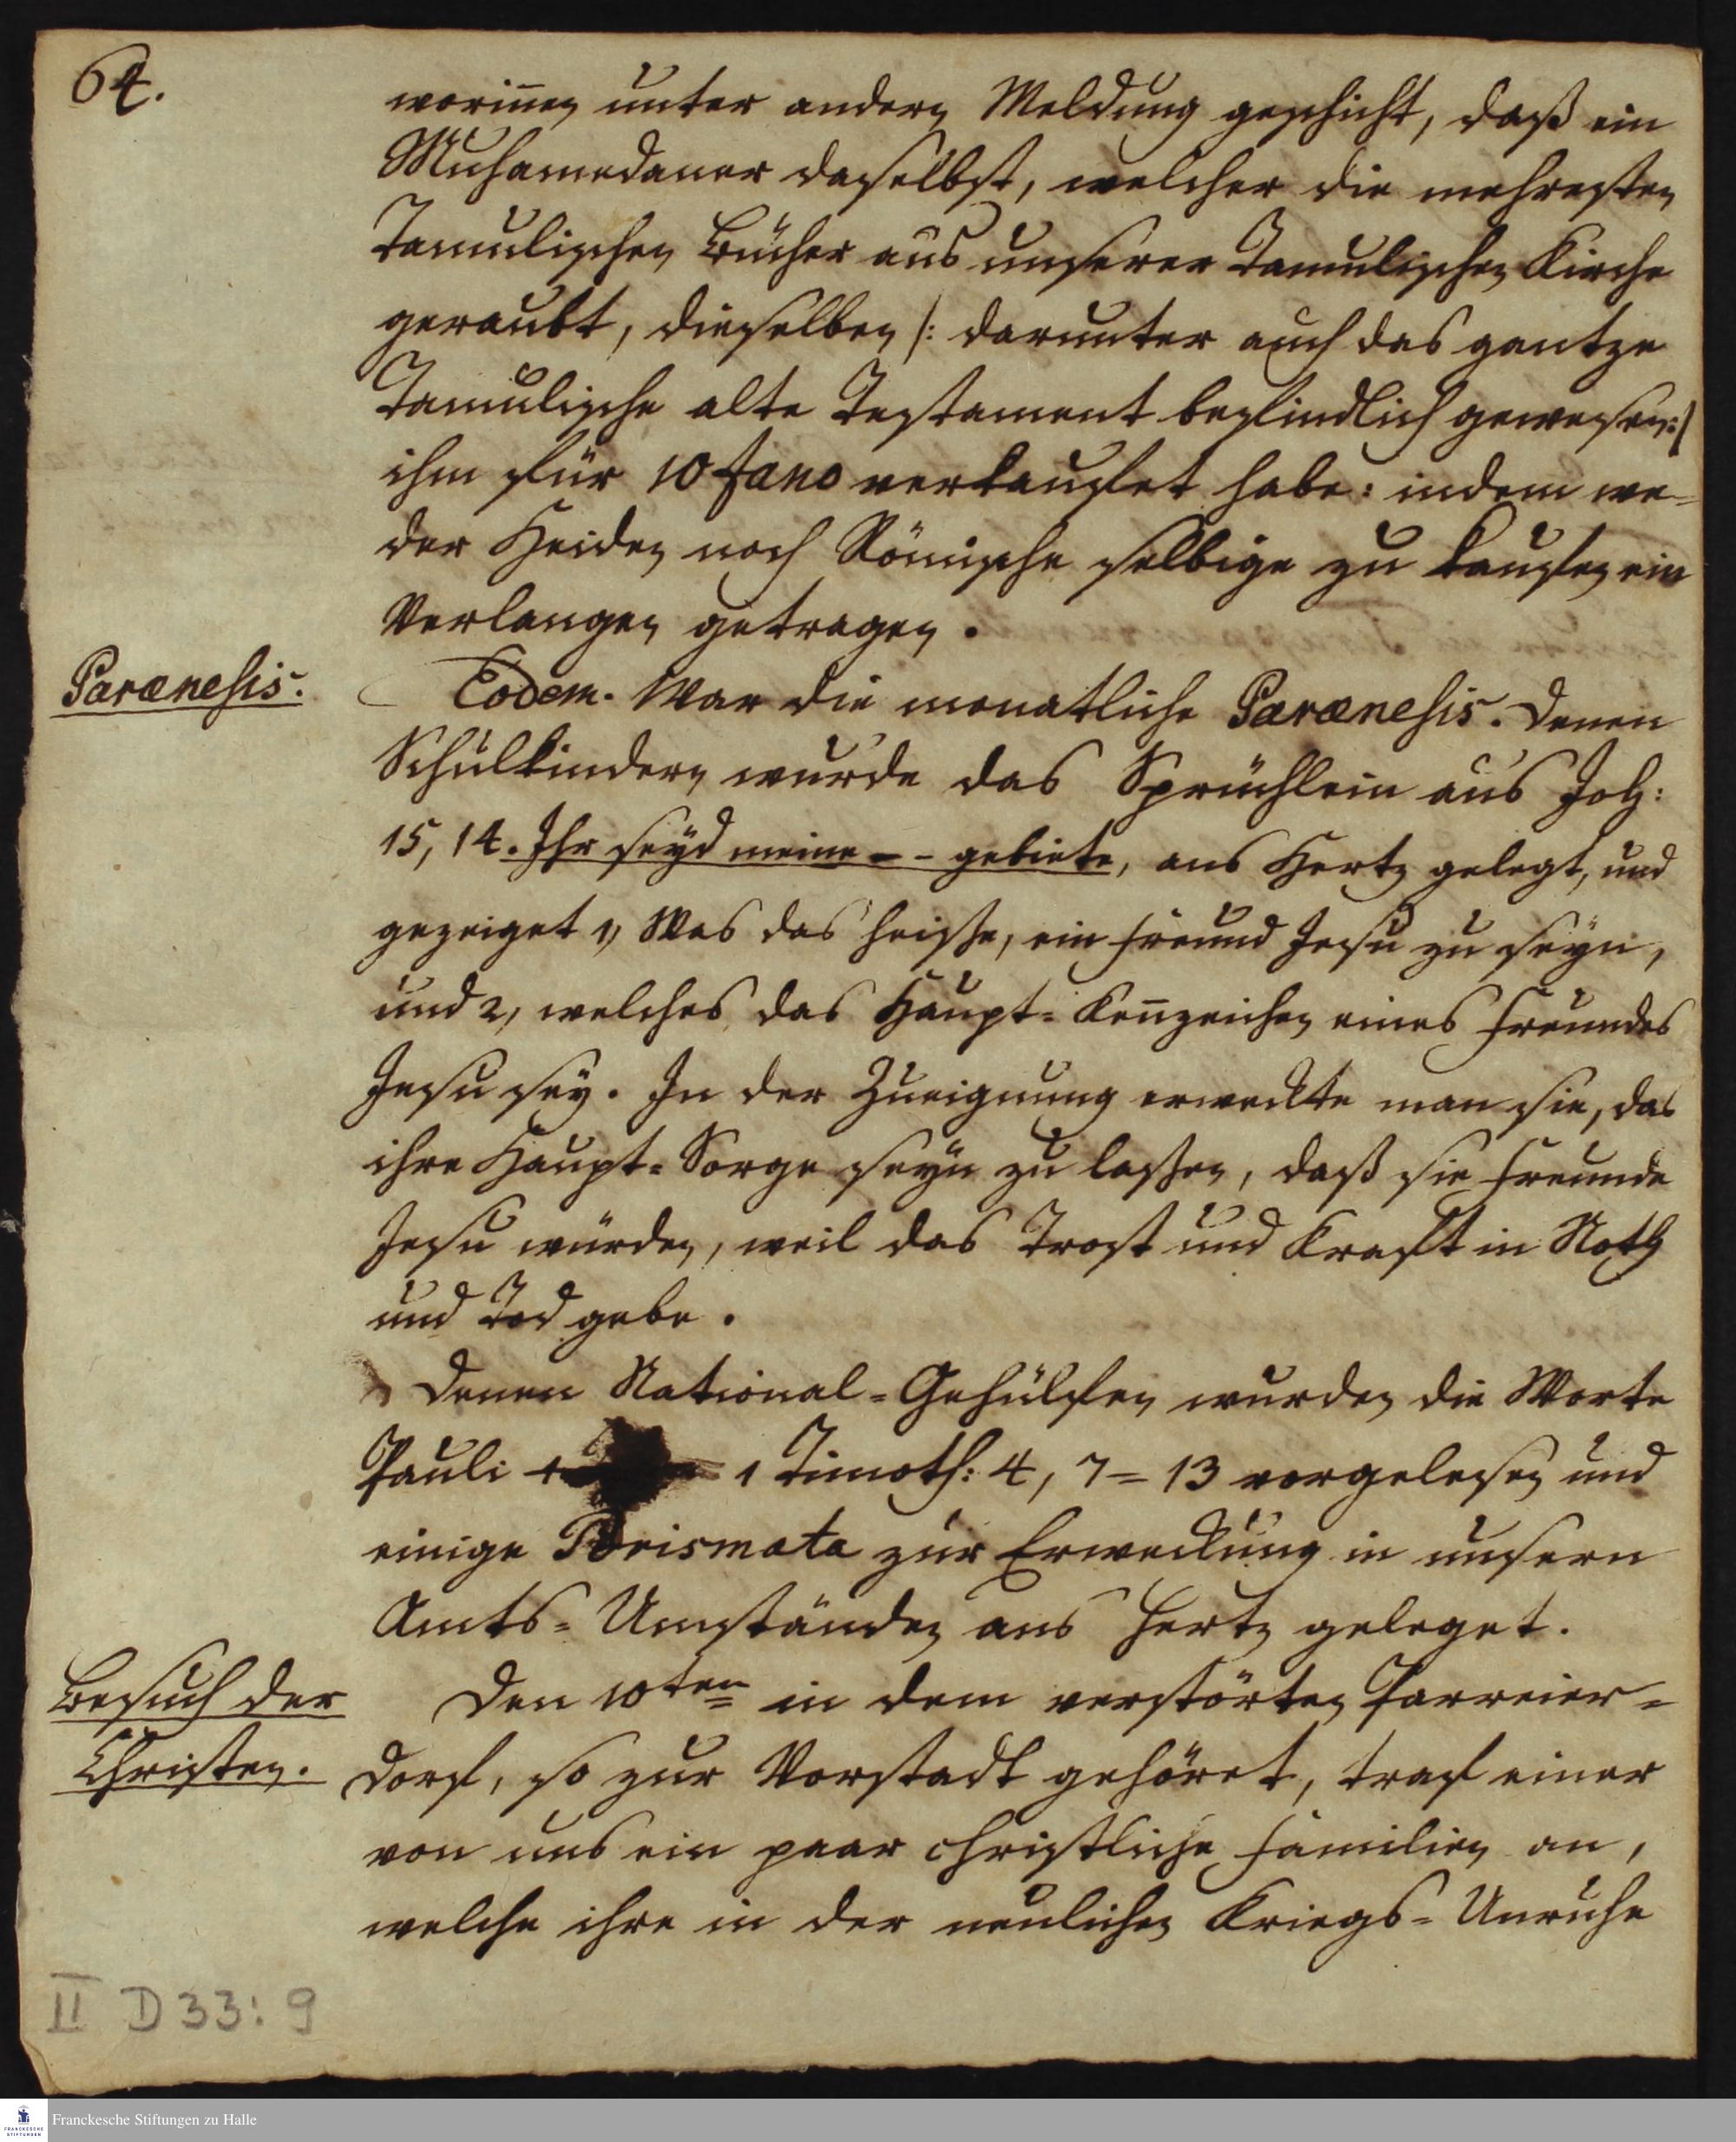 64.
worin̄en unter andern Meldung geschicht, daß ein
Muhamedaner daselbst, welcher die mehresten
Tamulischen Bücher aus unserer Tamulischen Kirche
geraubt, dieselben /: darunter auch das gantze
Tamulische alte Testament befindlich gewesen :/
ihm für 10 fano verkaufet habe: indem we=
der Heiden noch Römische selbige zu kaufen ein
Verlangen getragen.
Parænesis.
Eodem. War die monatliche Parænesis. Denen
Schulkindern wurde das Sprüchlein aus Joh:
15, 14. Ihr seyd meine - - gebiete, ans Hertz gelegt, und
gezeiget 1, Was das heisse, ein Freund Jesu zu seyn,
und 2, welches das Haupt=Ken̄zeichen eines Freundes
Jesu sey. In der Zueignung erweckte man sie, das
ihre Haupt=Sorge seyn zu lassen, daß sie Freunde
Jesu würden, weil das Trost und Kraft in Noth
und Tod gebe.
Denen National=Gehülfen wurden die Worte
Pauli 1 Timoth: 4, 7=13 vorgelesen und
einige Porismata zur Erweckung in unsern
Amts=Umständen ans Hertz geleget.
Besuch der
Christen.
Den 10ten in dem verstörten Parreier=
dorf, so zur Vorstadt gehöret, traf einer
von uns ein paar christliche Familien an,
welche ihre in der neulichen Kriegs=Unruhe
II D 33: 9
Franckesche Stiftungen zu Halle
FRANCKESCHE
STIFTUNGEN